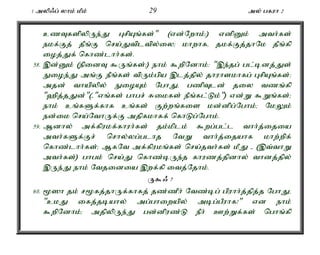 1 அலிஃப் லாம் மீம் 29 அல் பகரா 2
உணவுகளிலிருந்து புசியுங்கள்" (என்றோம்;) எனினும் அவர்கள்
நமக்குத் தீங்கு செய்துவிடவில்லை; மாறாக, தமக்குத்தாமே தீங்கி
ழைத்துக் கொண்டார்கள்.
58. இன்னும் (நினைவு கூருங்கள்;) நாம் கூறினோம்: "இந்தப் பட்டினத்துள்
நுழைந்து அங்கு நீங்கள் விரும்பிய இடத்தில் தாராளமாகப் புசியுங்கள்;
அதன் வாயிலில் நுழையும் போது, பணிவுடன் தலை வணங்கி
"ஹித்ததுன்" ("எங்கள் பாபச் சுமைகள் நீங்கட்டும்") என்று கூறுங்கள்;
நாம் உங்களுக்காக உங்கள் குற்றங்களை மன்னிப்போம்; மேலும்
நன்மை செய்வோருக்கு அதிகமாகக் கொடுப்போம்.
59. ஆனால் அக்கிரமக்காரர்கள் தம்மிடம் கூறப்பட்ட வார்த்தையை
அவர்களுக்குச் சொல்லப்படாத வேறு வார்த்தையாக மாற்றிக்
கொண்டார்கள்; ஆகவே அக்கிரமங்கள் செய்தவர்கள் மீது - (இவ்வாறு
அவர்கள்) பாபம் செய்து கொண்டிருந்த காரணத்தினால் வானத்தில்
இருந்து நாம் வேதனையை இறக்கி வைத்தோம்.
ருகூஃ 7
60. மூஸா தம் சமூகத்தாருக்காகத் தண்ணீர் வேண்டிப் பிரார்த்தித்த போது,
"உமது கைத்தடியால் அப்பாறையில் அடிப்பீராக!" என நாம்
கூறினோம்; அதிலிருந்து பன்னிரண்டு நீர் ஊற்றுக்கள் பொங்கி